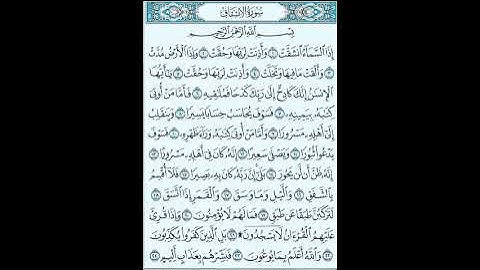 سُورَةُ الانْشِقَاقِ
بِسْمِ ٱللَّهِ ٱلرَّحْمَٰنِ ٱلرَّحِيمِ
إِذَا ٱلسَّمَآءُ ٱنشَقَّتْ ١ وَأَذِنَتْ لِرَبِّهَا وَحُقَّتْ ٢ وَإِذَا ٱلْأَرْضُ مُدَّتْ
٣ وَأَلْقَتْ مَا فِيهَا وَتَخَلَّتْ ٤ وَأَذِنَتْ لِرَبِّهَا وَحُقَّتْ ٥ يَٰٓأَيُّهَا
ٱلْإِنسَٰنُ إِنَّكَ كَادِحٌ إِلَىٰ رَبِّكَ كَدْحًا فَمُلَٰقِيهِ ٦ فَأَمَّا مَنْ أُوتِىَ
كِتَٰبَهُۥ بِيَمِينِهِۦ ٧ فَسَوْفَ يُحَاسَبُ حِسَابًا يَسِيرًا ٨ وَيَنقَلِبُ
إِلَىٰٓ أَهْلِهِۦ مَسْرُورًا ٩ وَأَمَّا مَنْ أُوتِىَ كِتَٰبَهُۥ وَرَآءَ ظَهْرِهِۦ ١٠ فَسَوْفَ
يَدْعُوا۟ ثُبُورًا ١١ وَيَصْلَىٰ سَعِيرًا ١٢ إِنَّهُۥ كَانَ فِىٓ أَهْلِهِۦ مَسْرُورًا
١٣ إِنَّهُۥ ظَنَّ أَن لَّن يَحُورَ ١٤ بَلَىٰٓ إِنَّ رَبَّهُۥ كَانَ بِهِۦ بَصِيرًا ١٥ فَلَآ أُقْسِمُ
بِٱلشَّفَقِ ١٦ وَٱلَّيْلِ وَمَا وَسَقَ ١٧ وَٱلْقَمَرِ إِذَا ٱتَّسَقَ ١٨
لَتَرْكَبُنَّ طَبَقًا عَن طَبَقٍ ١٩ فَمَا لَهُمْ لَا يُؤْمِنُونَ ٢٠ وَإِذَا قُرِئَ
عَلَيْهِمُ ٱلْقُرْءَانُ لَا يَسْجُدُونَ ۩ ٢١ بَلِ ٱلَّذِينَ كَفَرُوا۟ يُكَذِّبُونَ
٢٢ وَٱللَّهُ أَعْلَمُ بِمَا يُوعُونَ ٢٣ فَبَشِّرْهُم بِعَذَابٍ أَلِيمٍ ٢٤